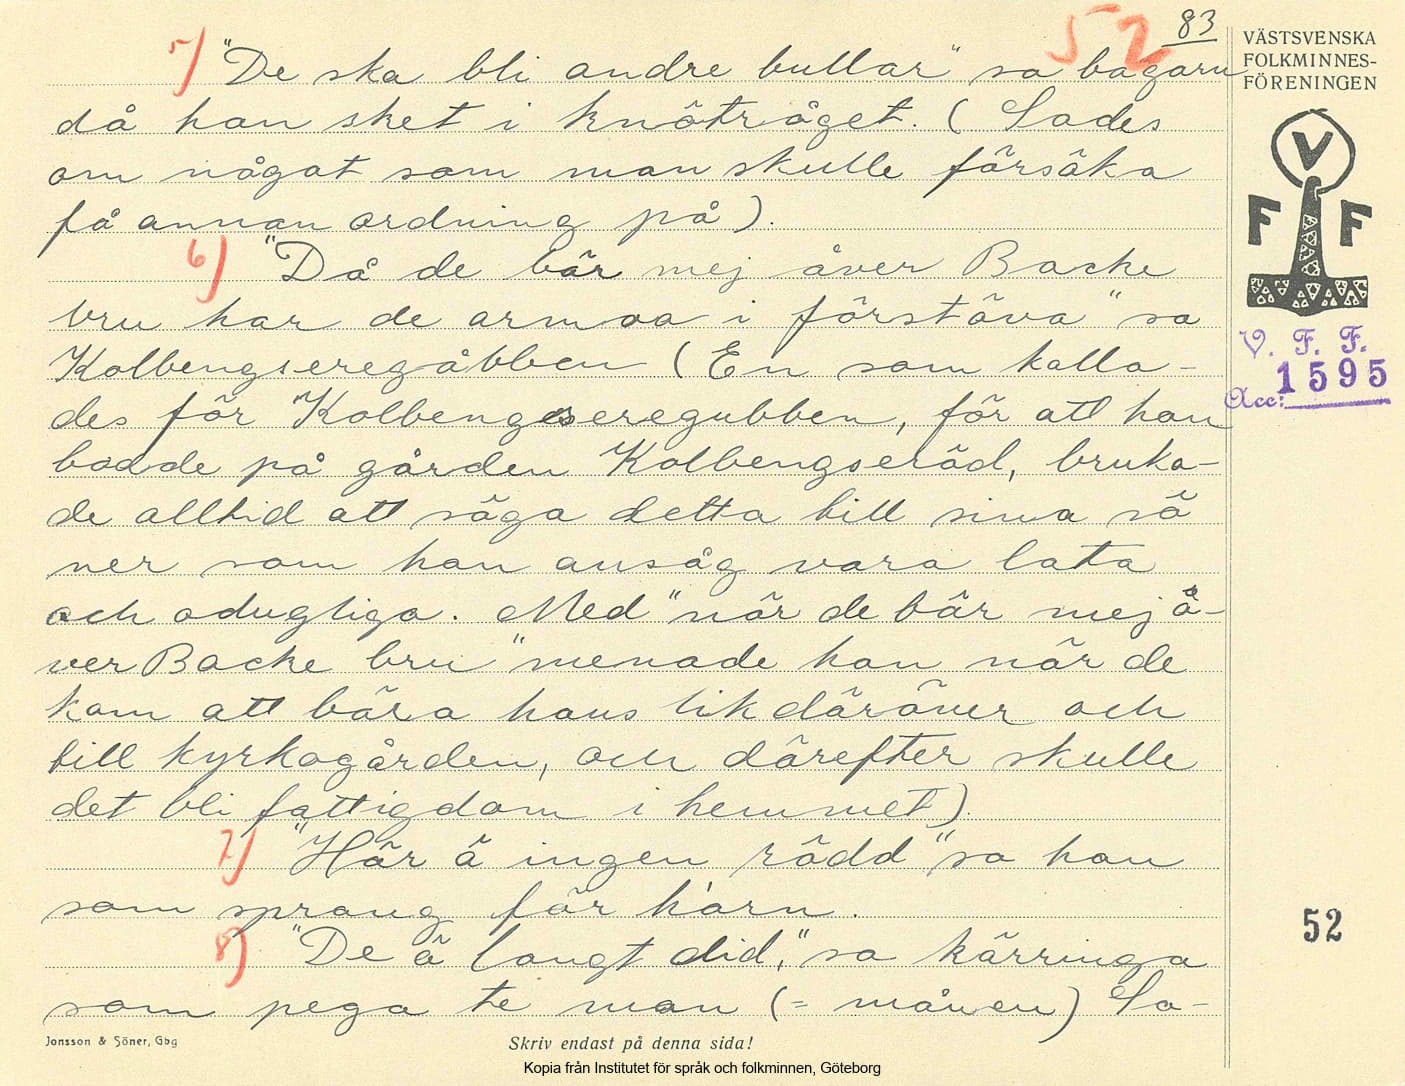 52 83
5) "De ska bli andre bullar" sa bagarn
då han sket i knôtråget. (Sades
om något som man skulle försöka
få annan ordning på).
6) "Då de bär mej åver Backe
bru har de armoa i förstöva" sa
Kolbengseregåbben (En som kalla-
des för "Kolbengseregubben, för att han
bodde på gården Kolbengseröd, bruka-
de alltid att säga detta till sina sö
ner som han ansåg vara lata
och odugliga. Med "når de bär mej å-
ver Backe bru" menade han när de
kom att bära hans lik däröver och
till kyrkogården, och därefter skulle
det bli fattigdom i hemmet).
7) "Här ä ingen rädd" sa han
som sprang för hårn.
8) "De ä langt did," sa kärringa
som pega te man (= månen) Sa-
Jonsson & Söner, Gbg
Skriv endast på denna sida!
Kopia från Institutet för språk och folkminnen, Göteborg
VÄSTSVENSKA
FOLKMINNES-
FÖRENINGEN
V
F F
V. F. F.
Acc: 1595
52